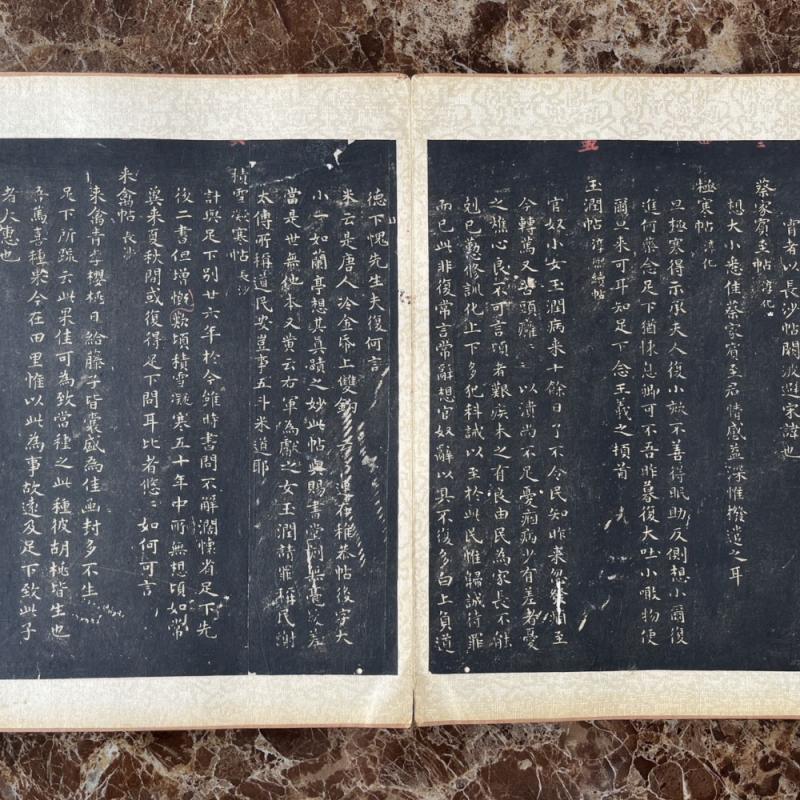 甯者以長沙帖闕波避宋諱也
蔡家賓至帖 淳化
想大小悉佳蔡家賓至君情感益深惟撥遣之耳
極寒帖 淳化
旦極寒得示承夫人復小欬不善得眠助反側想小爾復
進何藥念足下猶悚息卿可不吾昨暮復大吐小噉物便
爾旦來可耳知足下念王羲之頓首
玉潤帖 淳熙續帖
官奴小女玉潤病來十餘日了不令民知昨來忽發痼至
今轉篤又苦頭癰 以潰尚不足憂痼病少有差者憂
之燋心良不可言頃者艱疾未之有良由民為家長不能
剋己懃修訓化上下多犯科誡以至於此民惟歸誠待罪
而已此非復常言常辭想官奴辭以具不復多白上負道
德下愧先生夫復何言
米云是唐人冷金帋上雙鈎 連在稚恭帖後字大
小一如蘭亭想其真蹟之妙此帖與賜書堂刻無毫髮差
當是世無他本又黃云右軍為獻之女玉潤請罪稱民謝
太傅所稱道民安豈事五斗米道耶
積雪凝寒帖 長沙
計與足下別廿六年於今雖時書問不解闊懷省足下先
後二書但增慨歎頃積雪凝寒五十年中所無想頃如常
冀來夏秋間或復得足下問耳比者悠 如何可言
來禽帖 長沙
來禽青李櫻桃日給藤子皆囊盛為佳函封多不生
足下所疏云此果佳可為致當種之此種彼胡桃皆生也
吾篤喜種果今在田里惟以此為事故遠及足下致此子
者大惠也